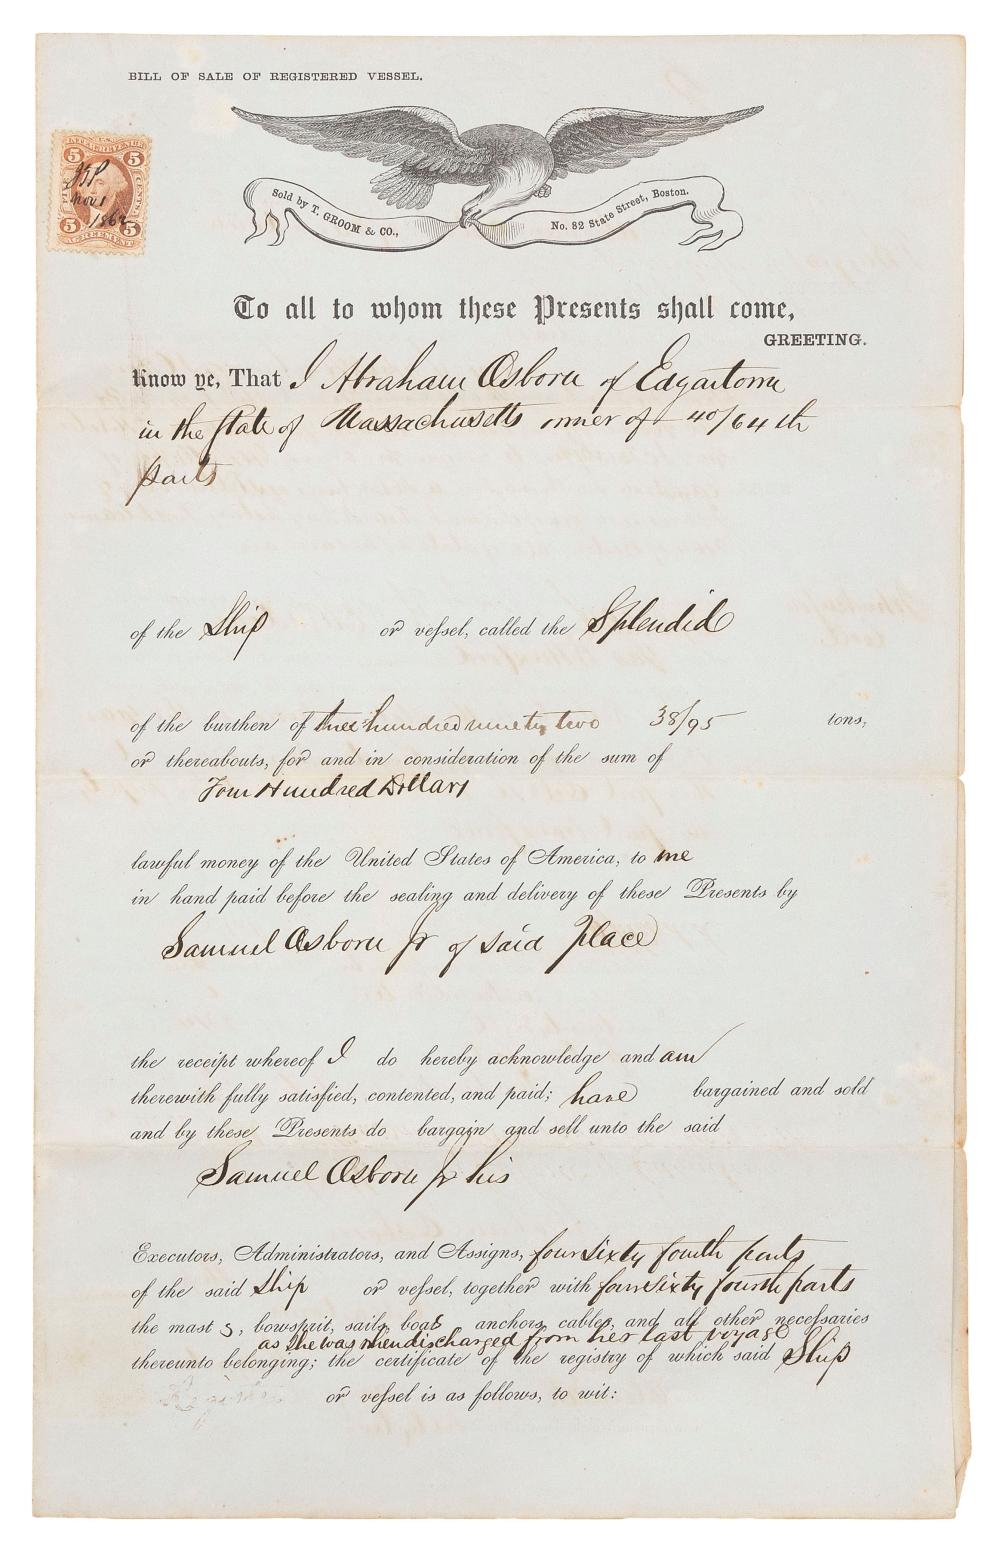 BILL OF SALE OF REGISTERED VESSEL.
5 5
U.S. INTER. REVENUE
FIVE CENTS
Nov 1
1862
5 5
AGREEMENT
Sold by T. GROOM & CO., No. 82 State Street, Boston.
To all to whom these Presents shall come,
GREETING.
Know ye, That I Abraham Osborn of Edgartown
in the State of Massachusetts owner of 40/64 th
parts
of the Ship or vessel, called the Splendid
of the burthen of three hundred ninety two 38/95 tons,
or thereabouts, for and in consideration of the sum of
Four Hundred Dollars
lawful money of the United States of America, to me
in hand paid before the sealing and delivery of these Presents by
Samuel Osborn Jr of said Place
the receipt whereof I do hereby acknowledge and am
therewith fully satisfied, contented, and paid; have bargained and sold
and by these Presents do bargain and sell unto the said
Samuel Osborn Jr his
Executors, Administrators, and Assigns, four sixty fourth parts
of the said Ship or vessel, together with four sixty fourth parts
the mast s, bowsprit, sails, boats anchors, cables, and all other necessaries
as she was when discharged from her last voyage
thereunto belonging; the certificate of the registry of which said Ship
or vessel is as follows, to wit: